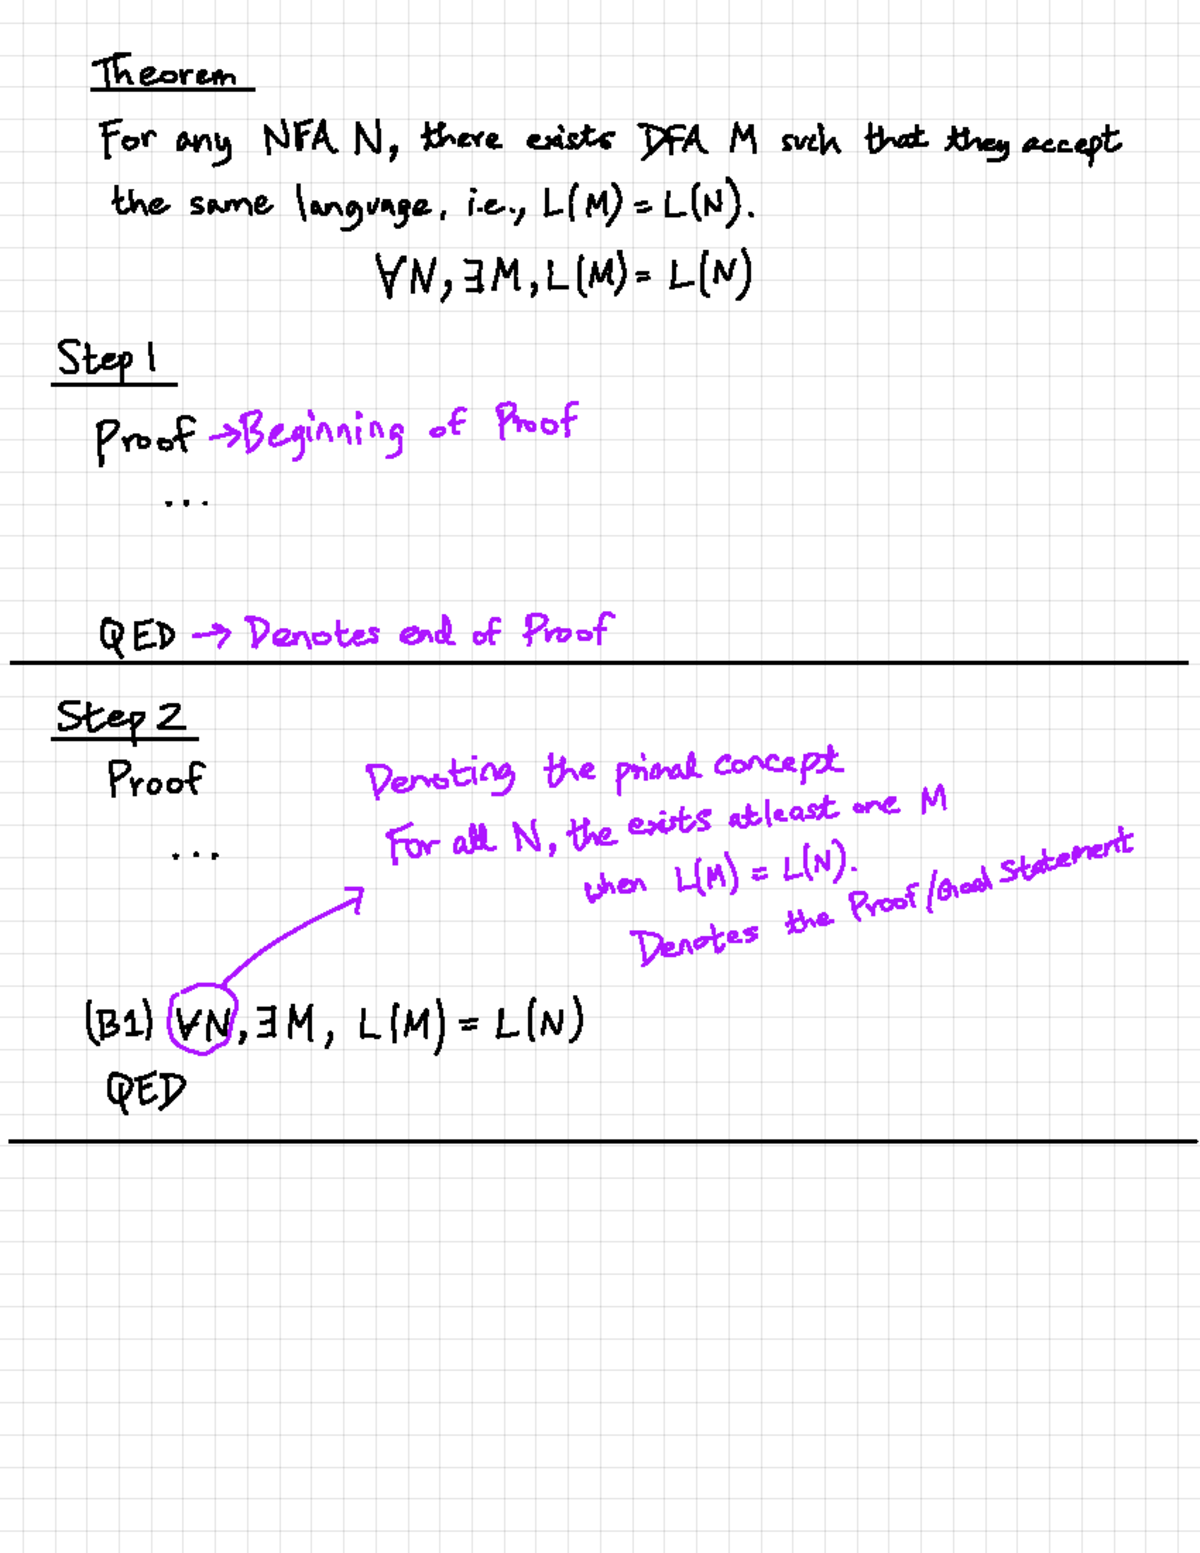 Theorem
For any NFA N, there exists DFA M such that they accept
the same language, i.e., L(M) = L(N).
∀N, ∃M, L(M) = L(N)
Step 1
Proof → Beginning of Proof
...
QED → Denotes end of Proof
Step 2
Proof
Denoting the primal concept
...
For all N, the exists atleast one M
when L(M) = L(N).
Denotes the Proof/Goal Statement
(B1) ∀N, ∃M, L(M) = L(N)
QED